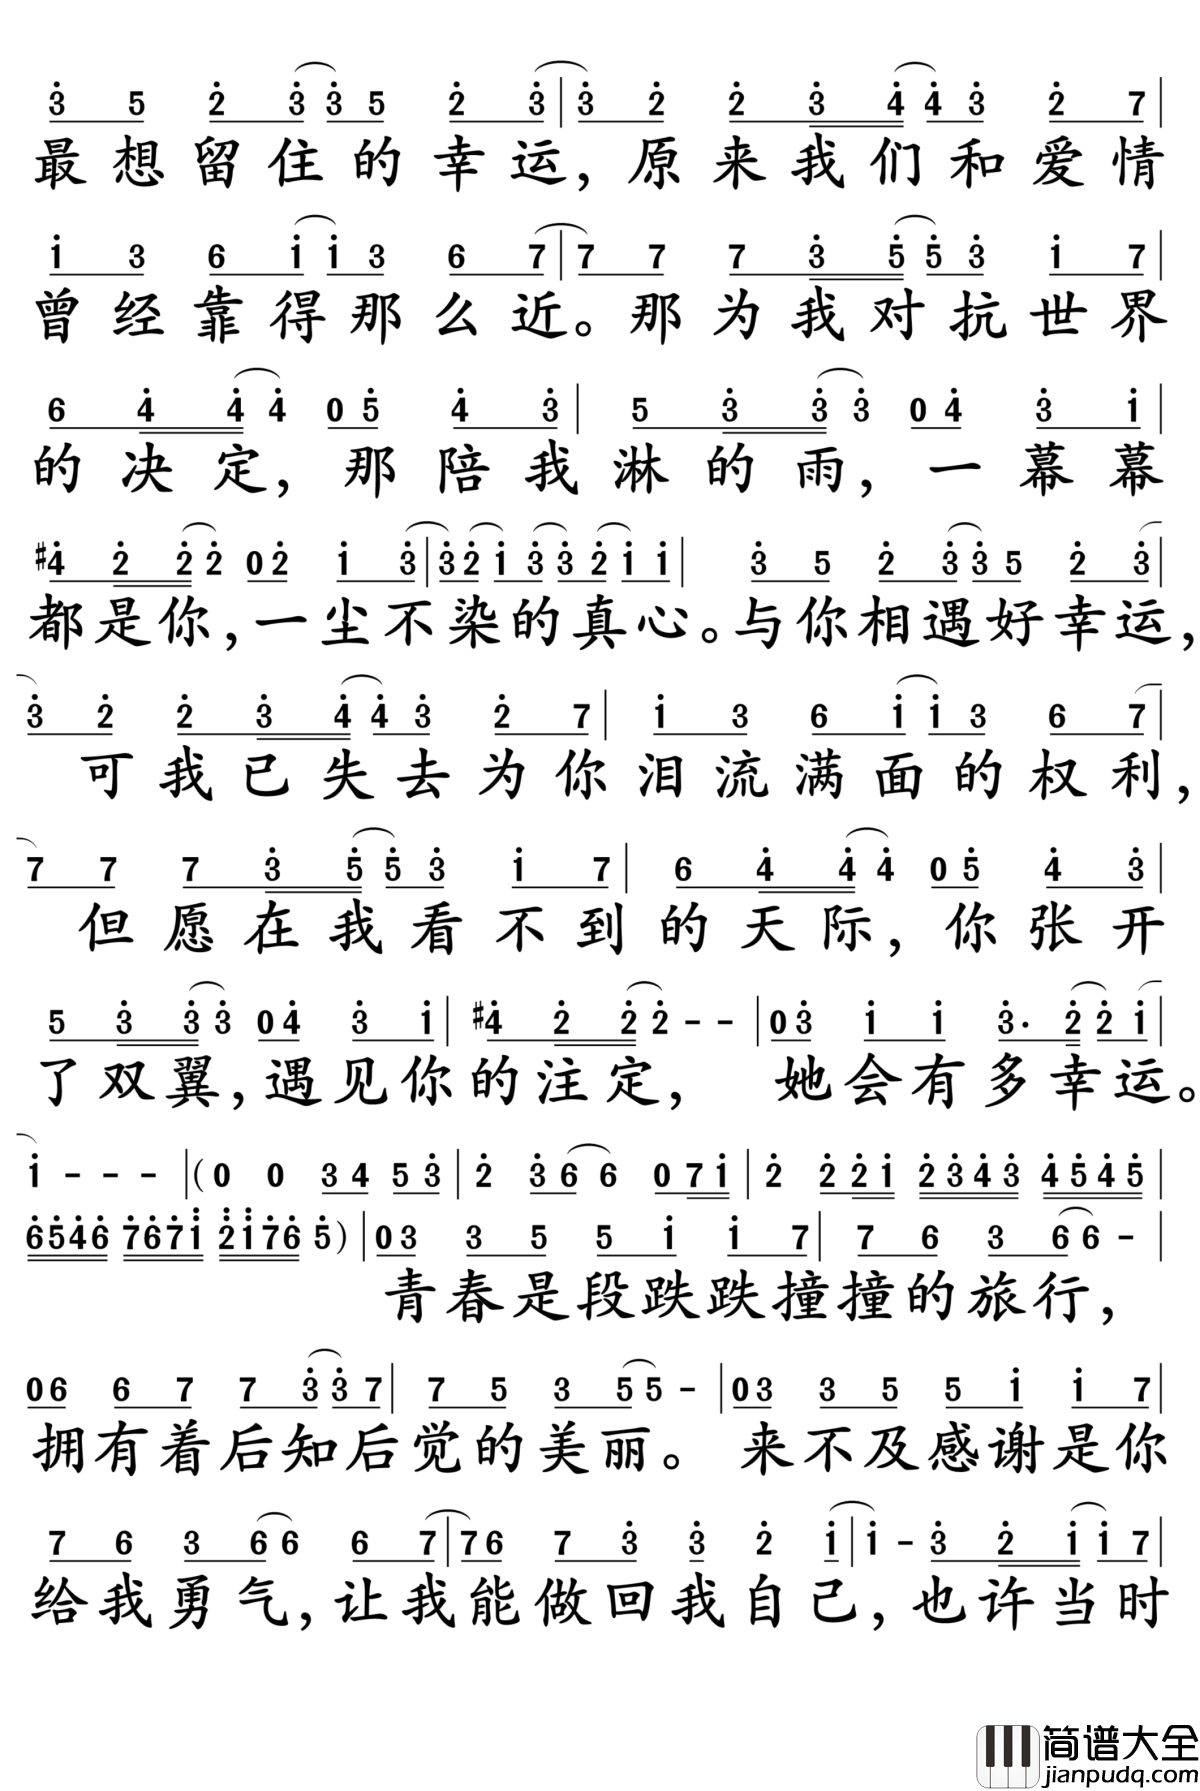 3 5 2 3 3 5 2 3 | 3 2 2 3 4 4 3 2 7 |
最想留住的幸运，原来我们和爱情
1 3 6 1 1 3 6 7 | 7 7 7 3 5 5 3 1 7 |
曾经靠得那么近。那为我对抗世界
6 4 4 4 0 5 4 3 | 5 3 3 3 0 4 3 1 |
的决定，那陪我淋的雨，一幕幕
#4 2 2 2 0 2 1 3 | 3 2 1 3 3 2 1 1 | 3 5 2 3 3 5 2 3 |
都是你，一尘不染的真心。与你相遇好幸运，
3 2 2 3 4 4 3 2 7 | 1 3 6 1 1 3 6 7 |
可我已失去为你泪流满面的权利，
7 7 7 3 5 5 3 1 7 | 6 4 4 4 0 5 4 3 |
但愿在我看不到的天际，你张开
5 3 3 3 0 4 3 1 | #4 2 2 2 - - | 0 3 1 1 3· 2 2 1 |
了双翼，遇见你的注定，她会有多幸运。
1 - - - | (0 0 3 4 5 3 | 2 3 6 6 0 7 1 | 2 2 2 1 2 3 4 3 4 5 4 5 |
6 5 4 6 7 6 7 1 2 1 7 6 5) | 0 3 3 5 5 1 1 7 | 7 6 3 6 6 - |
青春是段跌跌撞撞的旅行，
0 6 6 7 7 3 3 7 | 7 5 3 5 5 - | 0 3 3 5 5 1 1 7 |
拥有着后知后觉的美丽。来不及感谢是你
7 6 3 6 6 6 7 | 7 6 7 3 3 2 1 | 1 - 3 2 1 1 7 |
给我勇气，让我能做回我自己，也许当时
简谱大全
jianpudq.com